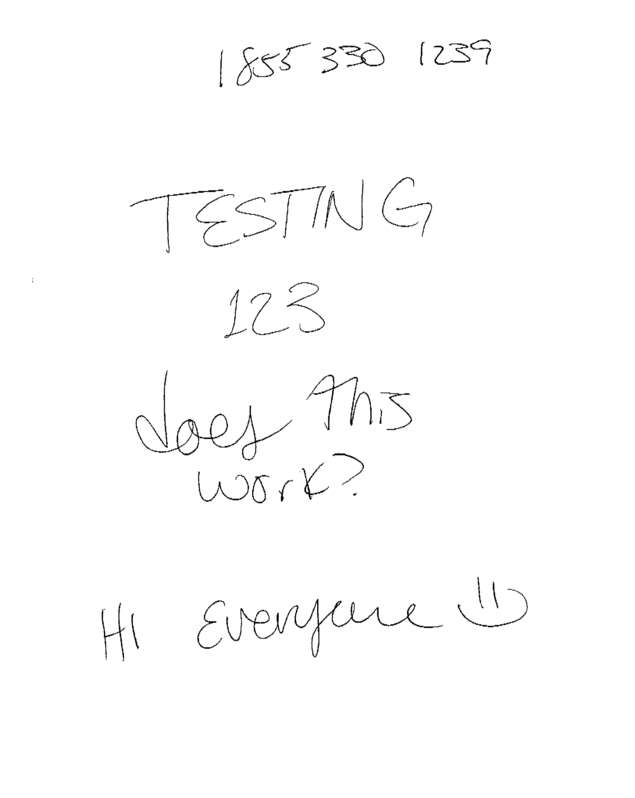 1 855 330 1239
TESTING
123
does this
work?
Hi Everyone